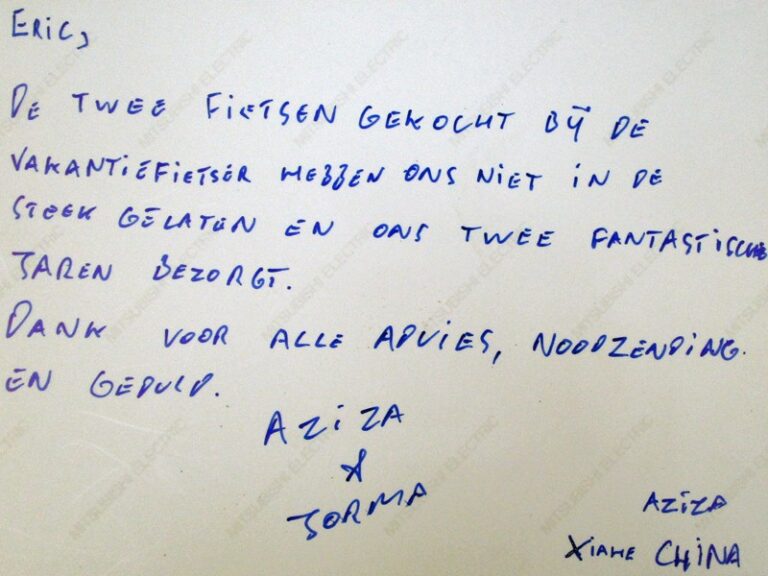 ERiC,
DE TWEE FiETSEN GEKOCHT BIJ DE
VAKANTIEFIETSER HEBBEN ONS NIET IN DE
STEEK GELATEN EN ONS TWEE FANTASTISCHE
JAREN BEZORGT.
DANK VOOR ALLE ADVIES, NOODZENDING.
EN GEDULD.
AZIZA
&
JORMA
AZIZA
XIAHE CHINA
MITSUBISHI ELECTRIC